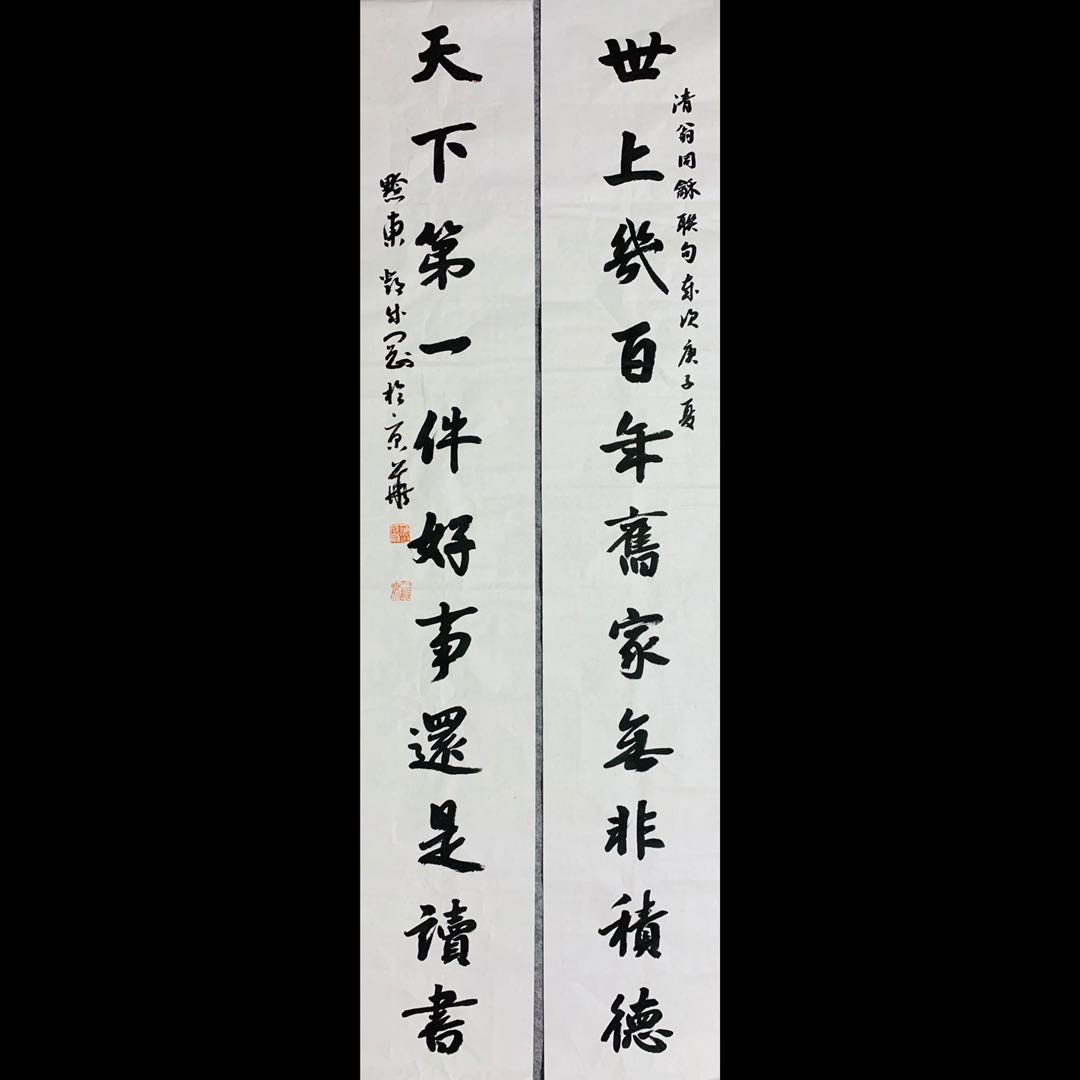 世上幾百年舊家無非積德
清翁同龢联句 岁次庚子夏
天下第一件好事還是讀書
黔東 於京華